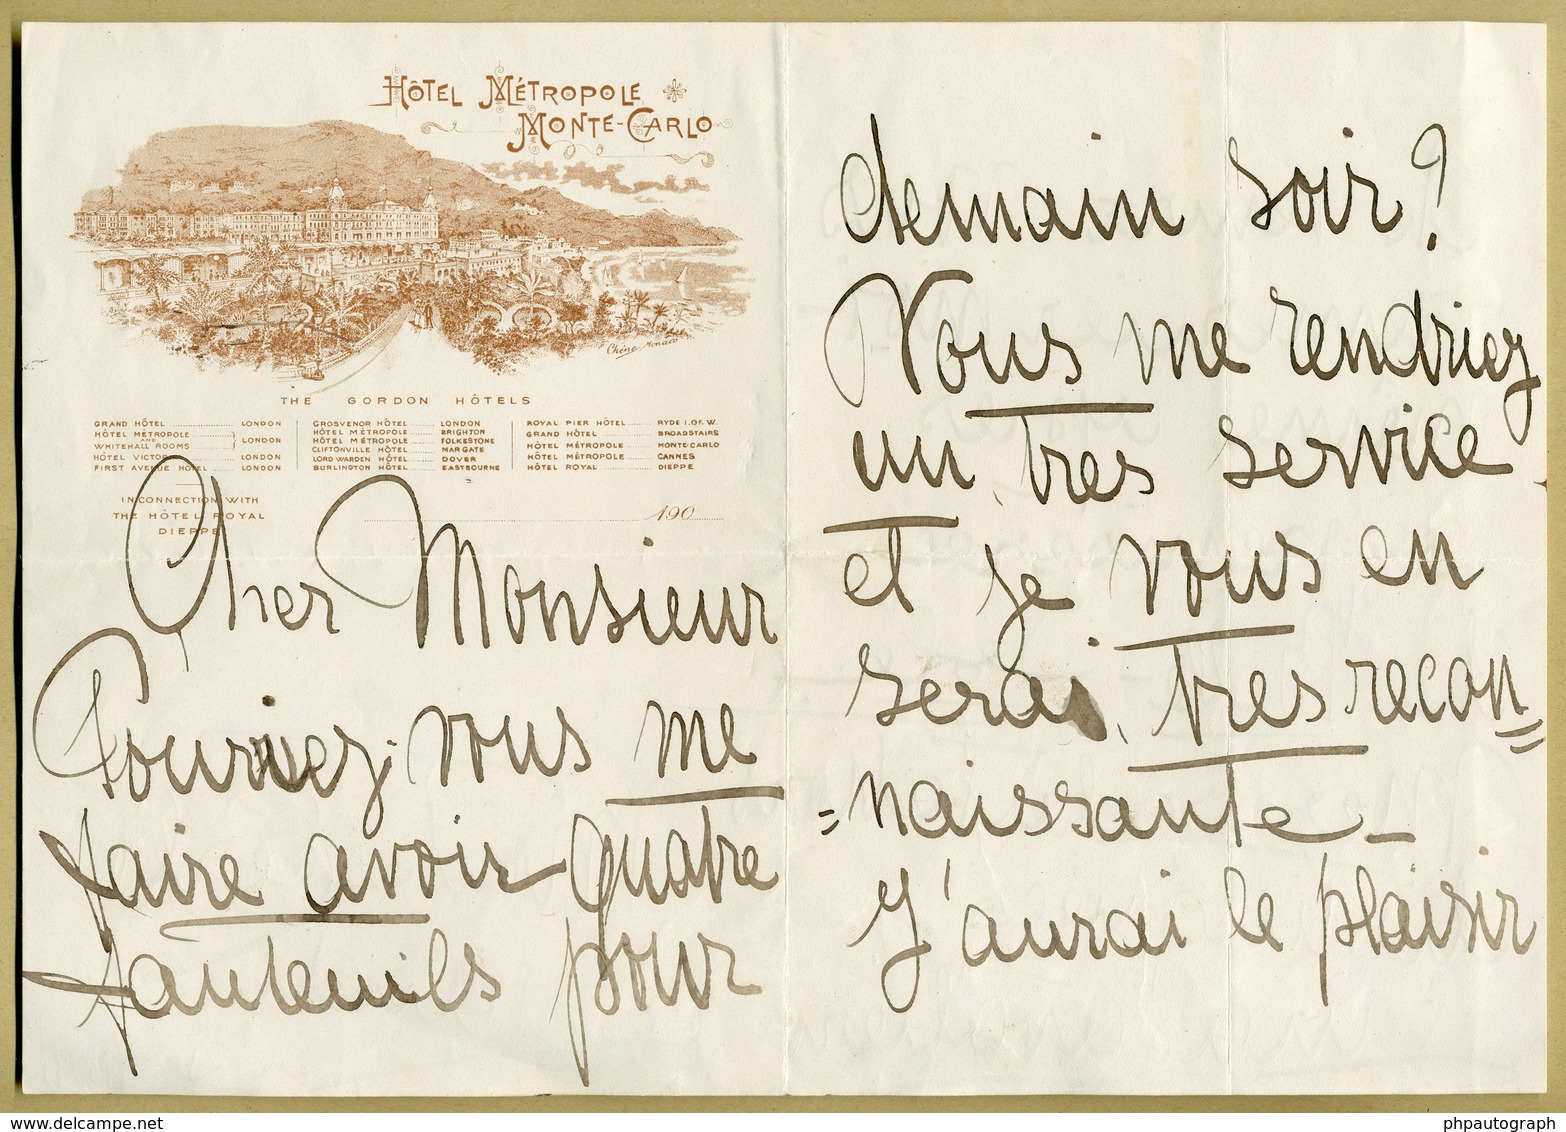 HÔTEL MÉTROPOLE
MONTE-CARLO
Chêne Monaco
THE GORDON HÔTELS
GRAND HÔTEL LONDON
HÔTEL MÉTROPOLE
AND
WHITEHALL ROOMS } LONDON
HÔTEL VICTORIA LONDON
FIRST AVENUE HOTEL LONDON
GROSVENOR HÔTEL LONDON
HÔTEL MÉTROPOLE BRIGHTON
HÔTEL MÉTROPOLE FOLKESTONE
CLIFTONVILLE HÔTEL MARGATE
LORD WARDEN HÔTEL DOVER
BURLINGTON HÔTEL EASTBOURNE
ROYAL PIER HÔTEL RYDE I.OF.W.
GRAND HÔTEL BROADSTAIRS
HÔTEL MÉTROPOLE MONTE-CARLO
HÔTEL MÉTROPOLE CANNES
HÔTEL ROYAL DIEPPE
IN CONNECTION WITH
THE HÔTEL ROYAL
DIEPPE
190
Cher Monsieur
Pourriez-vous me
faire avoir quatre
fauteuils pour
demain soir?
Vous me rendriez
un tres service
et je vous en
serai, tres recon=
=naissante_
J'aurai le plaisir
delcampe.net
phpautograph